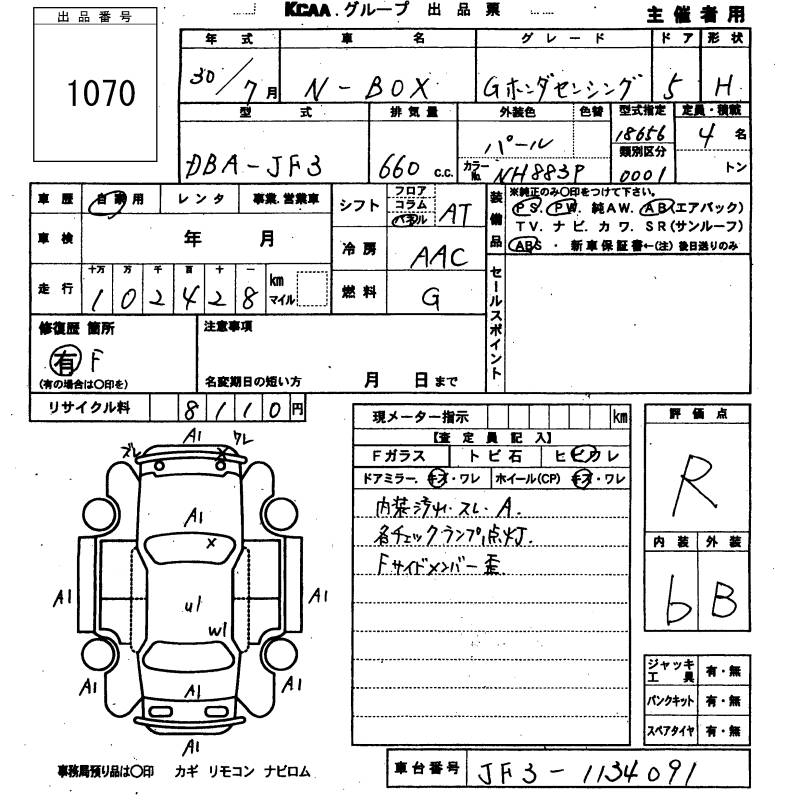 KCAA グループ 出品票
主催者用
出品番号
1070
年式 車名 グレード ドア 形状
30/7月 N-BOX Gホンダセンシング 5 H
型式 排気量 外装色 色替 型式指定 定員・積載
DBA-JF3 660 c.c. パール 18656 4名
カラーNo. NH883P 類別区分 0001 トン
車歴 自家用 レンタ 事業.営業車
車検 年 月
走行 十万 万 千 百 十 一
102428 km マイル
シフト フロア コラム パネル AT
冷房 AAC
燃料 G
装備品 ※純正のみ○印をつけて下さい。
PS. PW. 純AW. AB(エアバック)
TV. ナビ. カワ. SR(サンルーフ)
ABS ・ 新車保証書←(注) 後日送りのみ
セールスポイント
修復歴 箇所 注意事項
有 F
(有の場合は○印を) 名変期日の短い方 月 日まで
リサイクル料 8110円
現メーター指示 km
【査定員記入】
Fガラス トビ石 ヒビワレ
ドアミラー. キズ・ワレ ホイール(CP) キズ・ワレ
内装汚れ・スレ. A.
名チェックランプ点灯.
Fサイドメンバー歪.
評価点
R
内装 外装
b B
ジャッキ工具 有・無
パンクキット 有・無
スペアタイヤ 有・無
A1
ズレ ワレ
A1
A1 A1
u1
w1
A1 A1
A1
A1
事務局預り品は○印 カギ リモコン ナビロム
車台番号 JF3-1134091